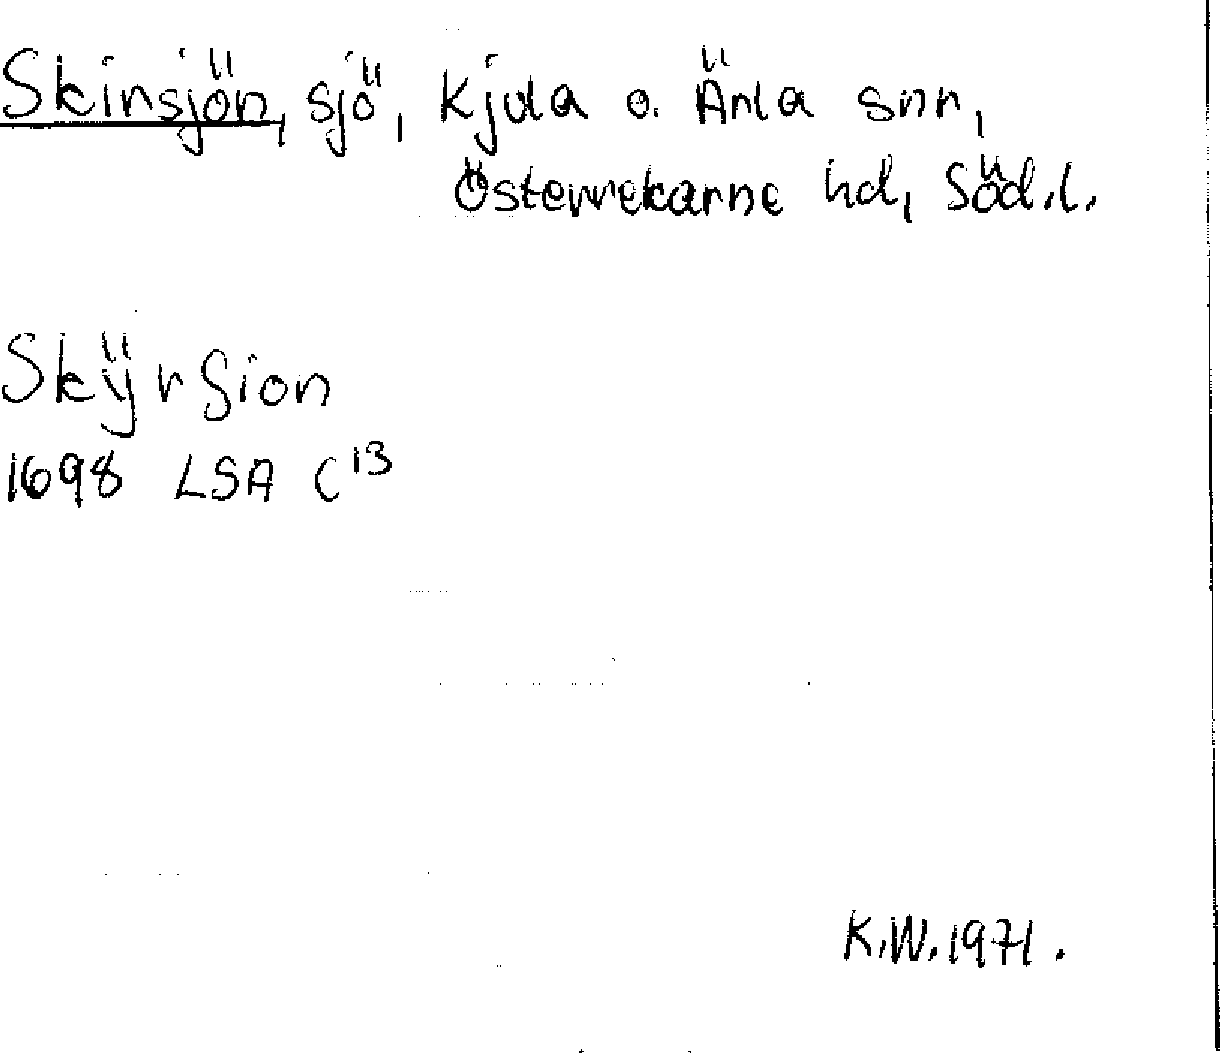 Skinsjön, sjö, Kjula o. Ärla snn,
Österrekarne hd, Söd.l.
Skÿrsion
1698 LSA C13
K.W. 1971.